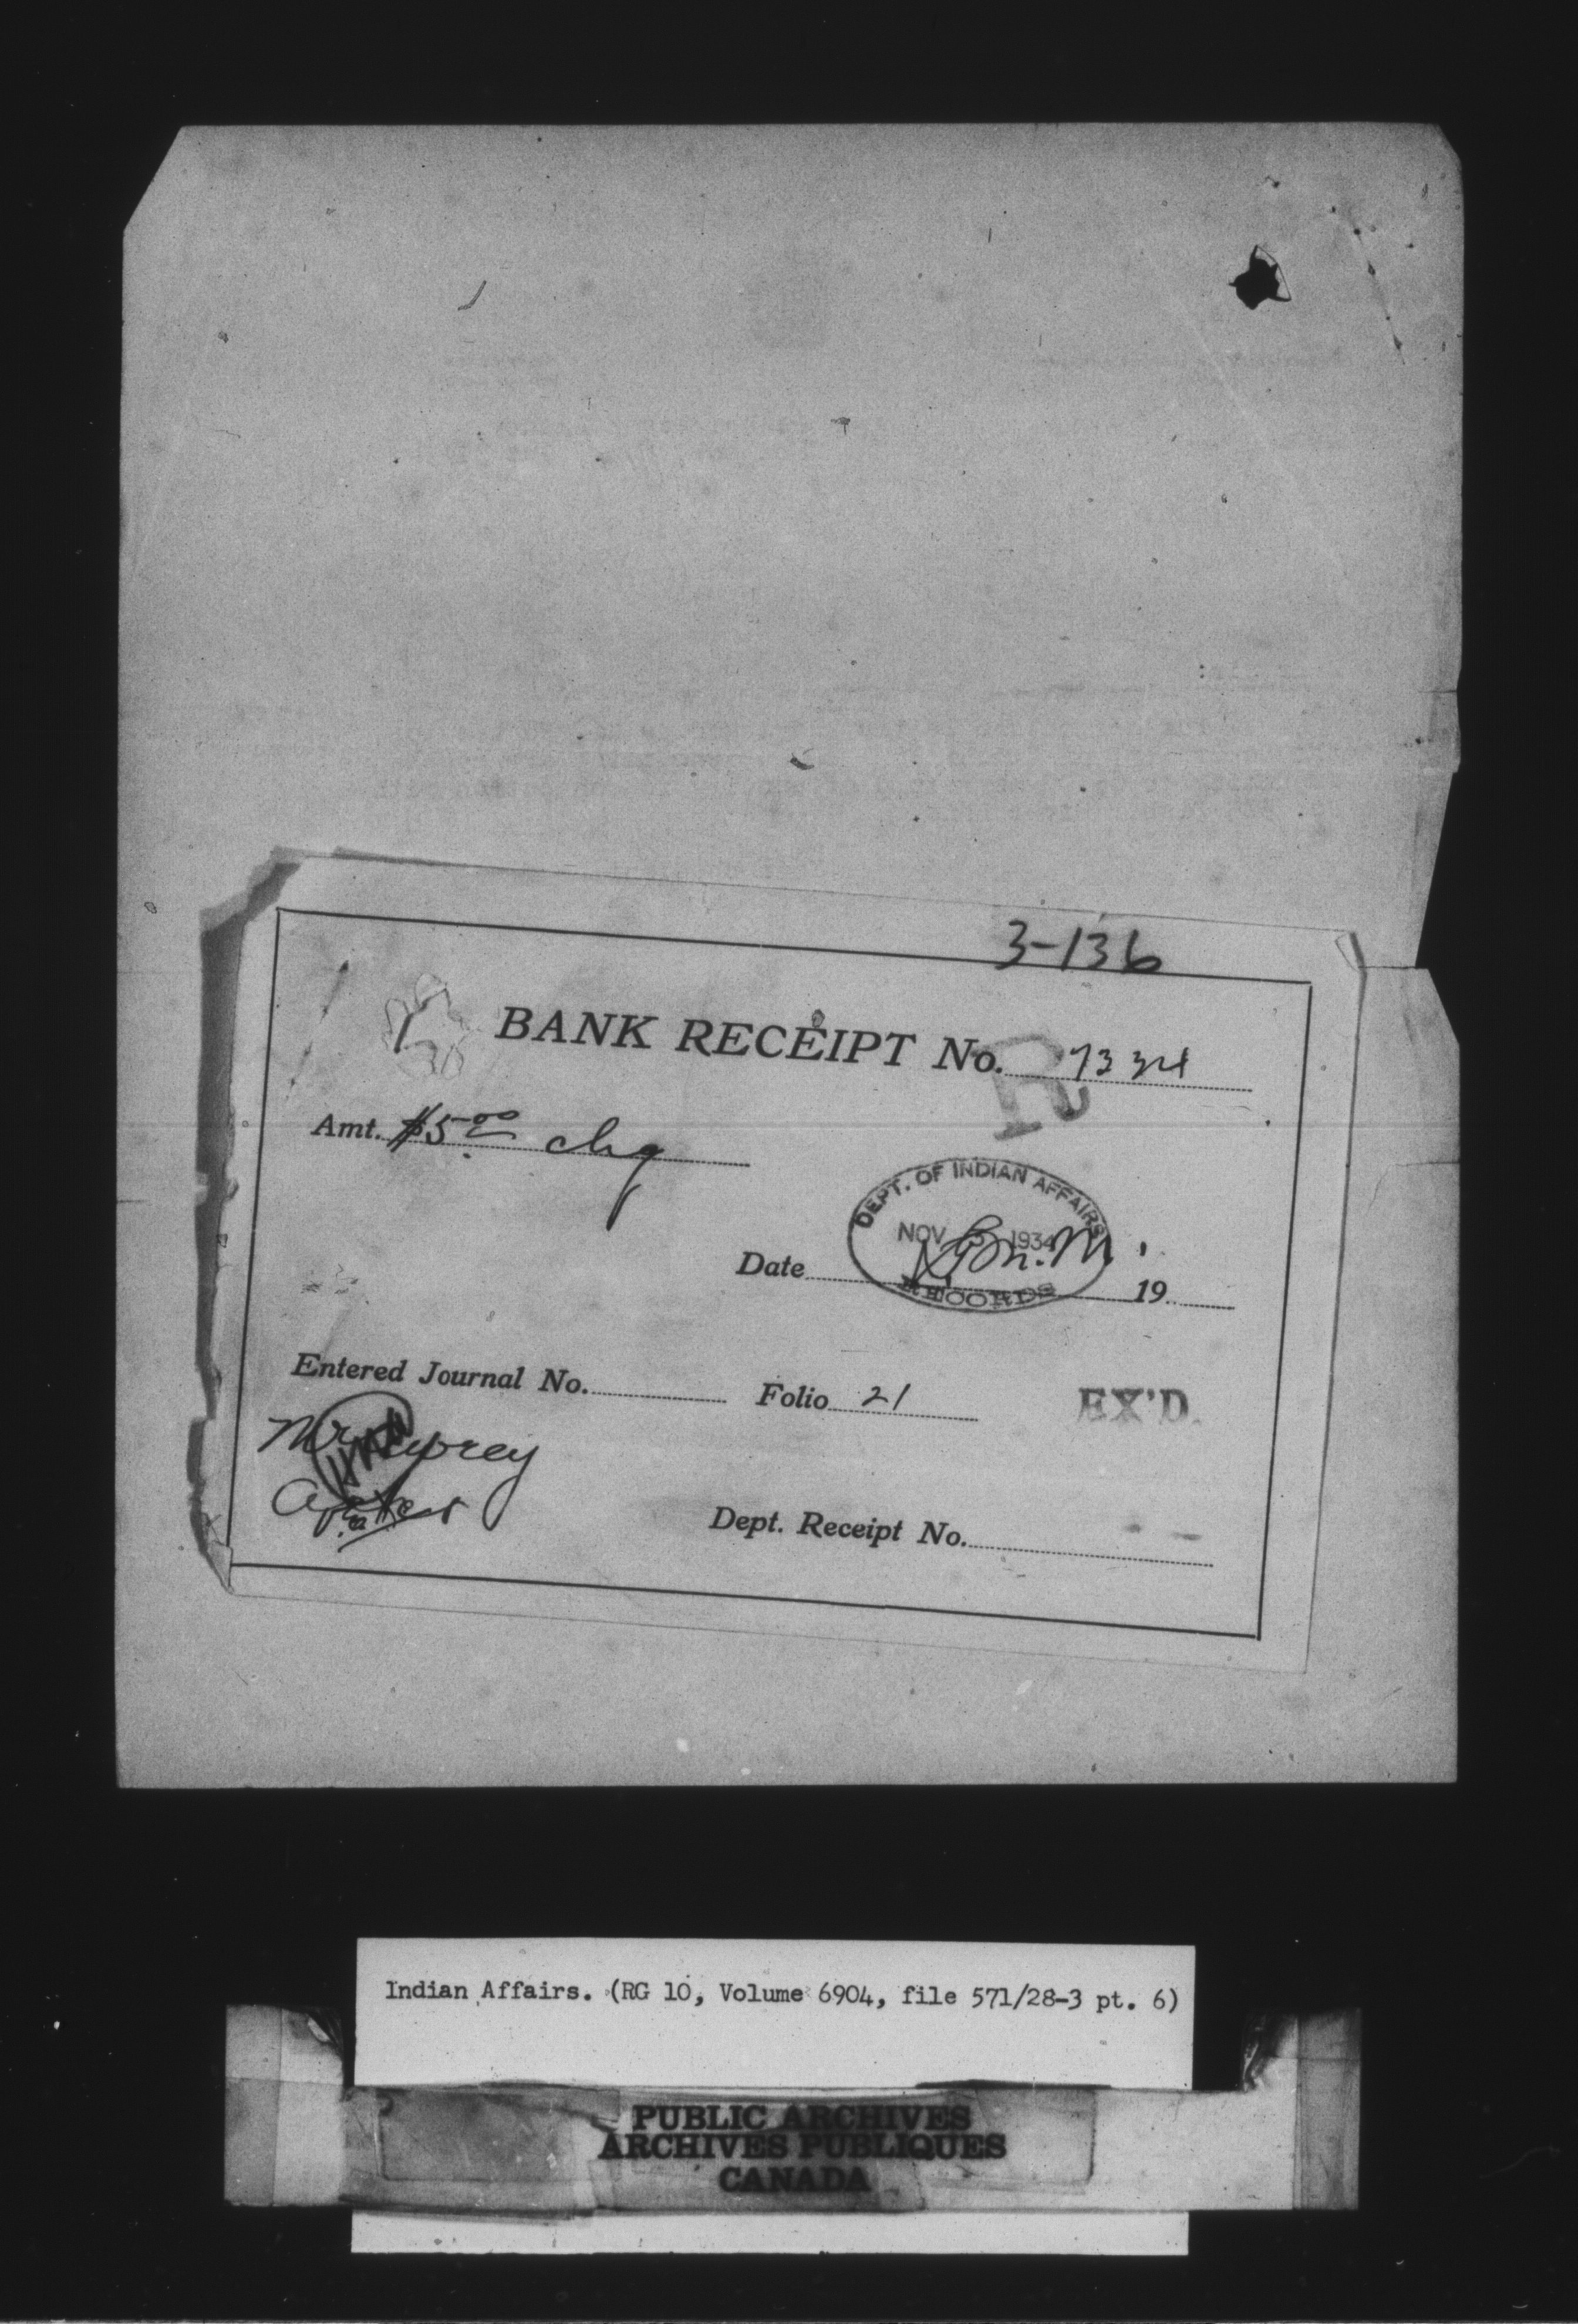 3-136
BANK RECEIPT No. 7334
R
Amt. $5.00 chq
DEPT. OF INDIAN AFFAIRS
NOV 1934
RECORDS
Date 19
Entered Journal No. Folio 21
EX'D.
Mr
Dept. Receipt No.
Indian Affairs. (RG 10, Volume 6904, file 571/28-3 pt. 6)
PUBLIC ARCHIVES
ARCHIVES PUBLIQUES
CANADA